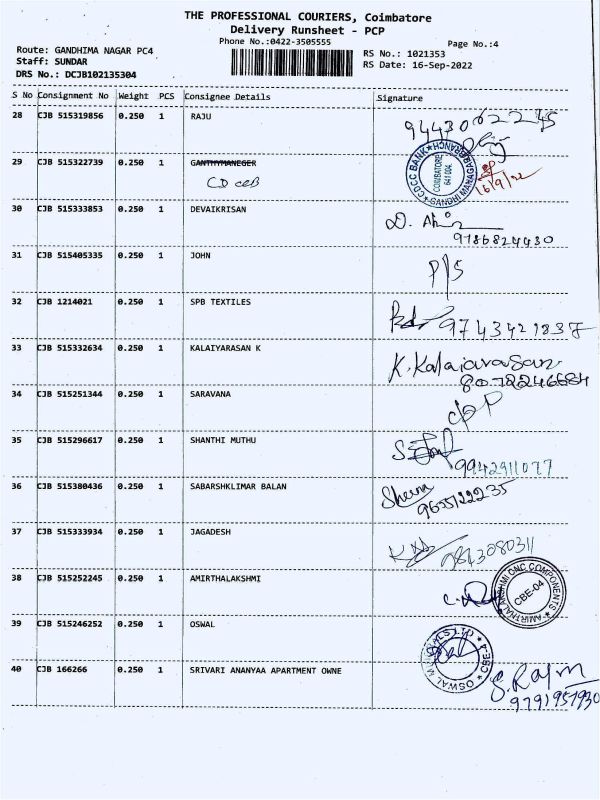 THE PROFESSIONAL COURIERS, Coimbatore
Delivery Runsheet - PCP
Phone No.:0422-3505555
Page No.:4
Route: GANDHIMA NAGAR PC4
RS No.: 1021353
Staff: SUNDAR
RS Date: 16-Sep-2022
DRS No.: DCJB102135304
S No Consignment No Weight PCS Consignee Details Signature
28 CJB 515319856 0.250 1 RAJU
9443062245
29 CJB 515322739 0.250 1 GANTHYMANEGER
CDCC BANK BRANCH COIMBATORE 641004. GANDHI MANAGAR
16/9/22
30 CJB 515333853 0.250 1 DEVAIKRISAN
9786824430
31 CJB 515405335 0.250 1 JOHN
P/S
32 CJB 1214021 0.250 1 SPB TEXTILES
9743421837
33 CJB 515332634 0.250 1 KALAIYARASAN K
K. Kalaiarasan
8072246684
34 CJB 515251344 0.250 1 SARAVANA
35 CJB 515296617 0.250 1 SHANTHI MUTHU
9942911077
36 CJB 515380436 0.250 1 SABARSHKLIMAR BALAN
9655122235
37 CJB 515333934 0.250 1 JAGADESH
9843080311
38 CJB 515252245 0.250 1 AMIRTHALAKSHMI
AMIRTHALAKSHMI CNC COMPONENTS CBE-04
39 CJB 515246252 0.250 1 OSWAL
OSWAL LTD CBE-4
40 CJB 166266 0.250 1 SRIVARI ANANYAA APARTMENT OWNE
9791957930